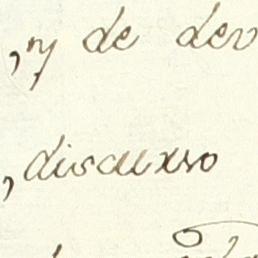 , y de dev
, discurso